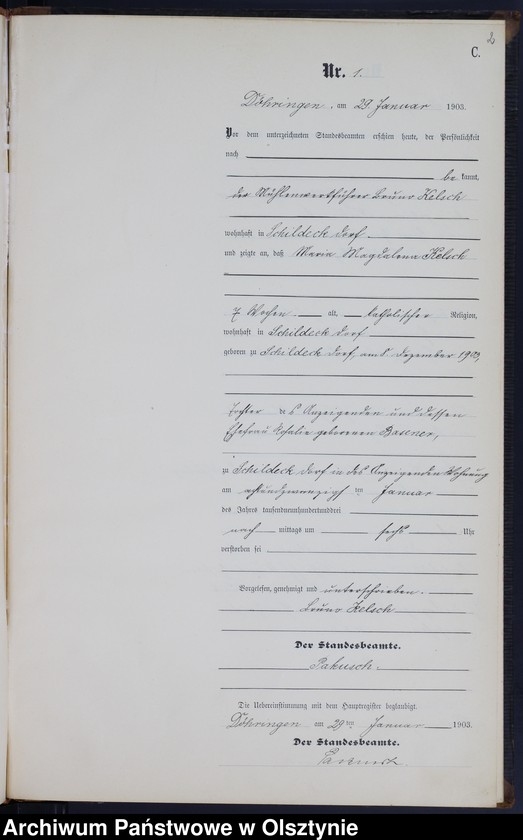 2
C.
Nr. 1.
Döhringen, am 29. Januar 1903.
Vor dem unterzeichneten Standesbeamten erschien heute, der Persönlichkeit
nach
be kannt,
der Mühlenwerkführer Bruno Kelsch
wohnhaft in Schildeck Dorf
und zeigte an, daß Maria Magdalena Kelsch
7 Wochen alt, katholischer Religion,
wohnhaft in Schildeck Dorf
geboren zu Schildeck Dorf, am 5 Dezember 1902,
Tochter des Anzeigenden und dessen
Ehefrau geborenen Basener,
zu Schildeck Dorf in des Anzeigenden Wohnung
am achtundzwanzigsten Januar
des Jahres tausendneunhundertunddrei
nach mittags um sechs Uhr
verstorben sei
Vorgelesen, genehmigt und unterschrieben.
Bruno Kelsch
Der Standesbeamte.
Die Uebereinstimmung mit dem Hauptregister beglaubigt.
Döhringen am 29ten Januar 1903.
Der Standesbeamte.
Archiwum Państwowe w Olsztynie